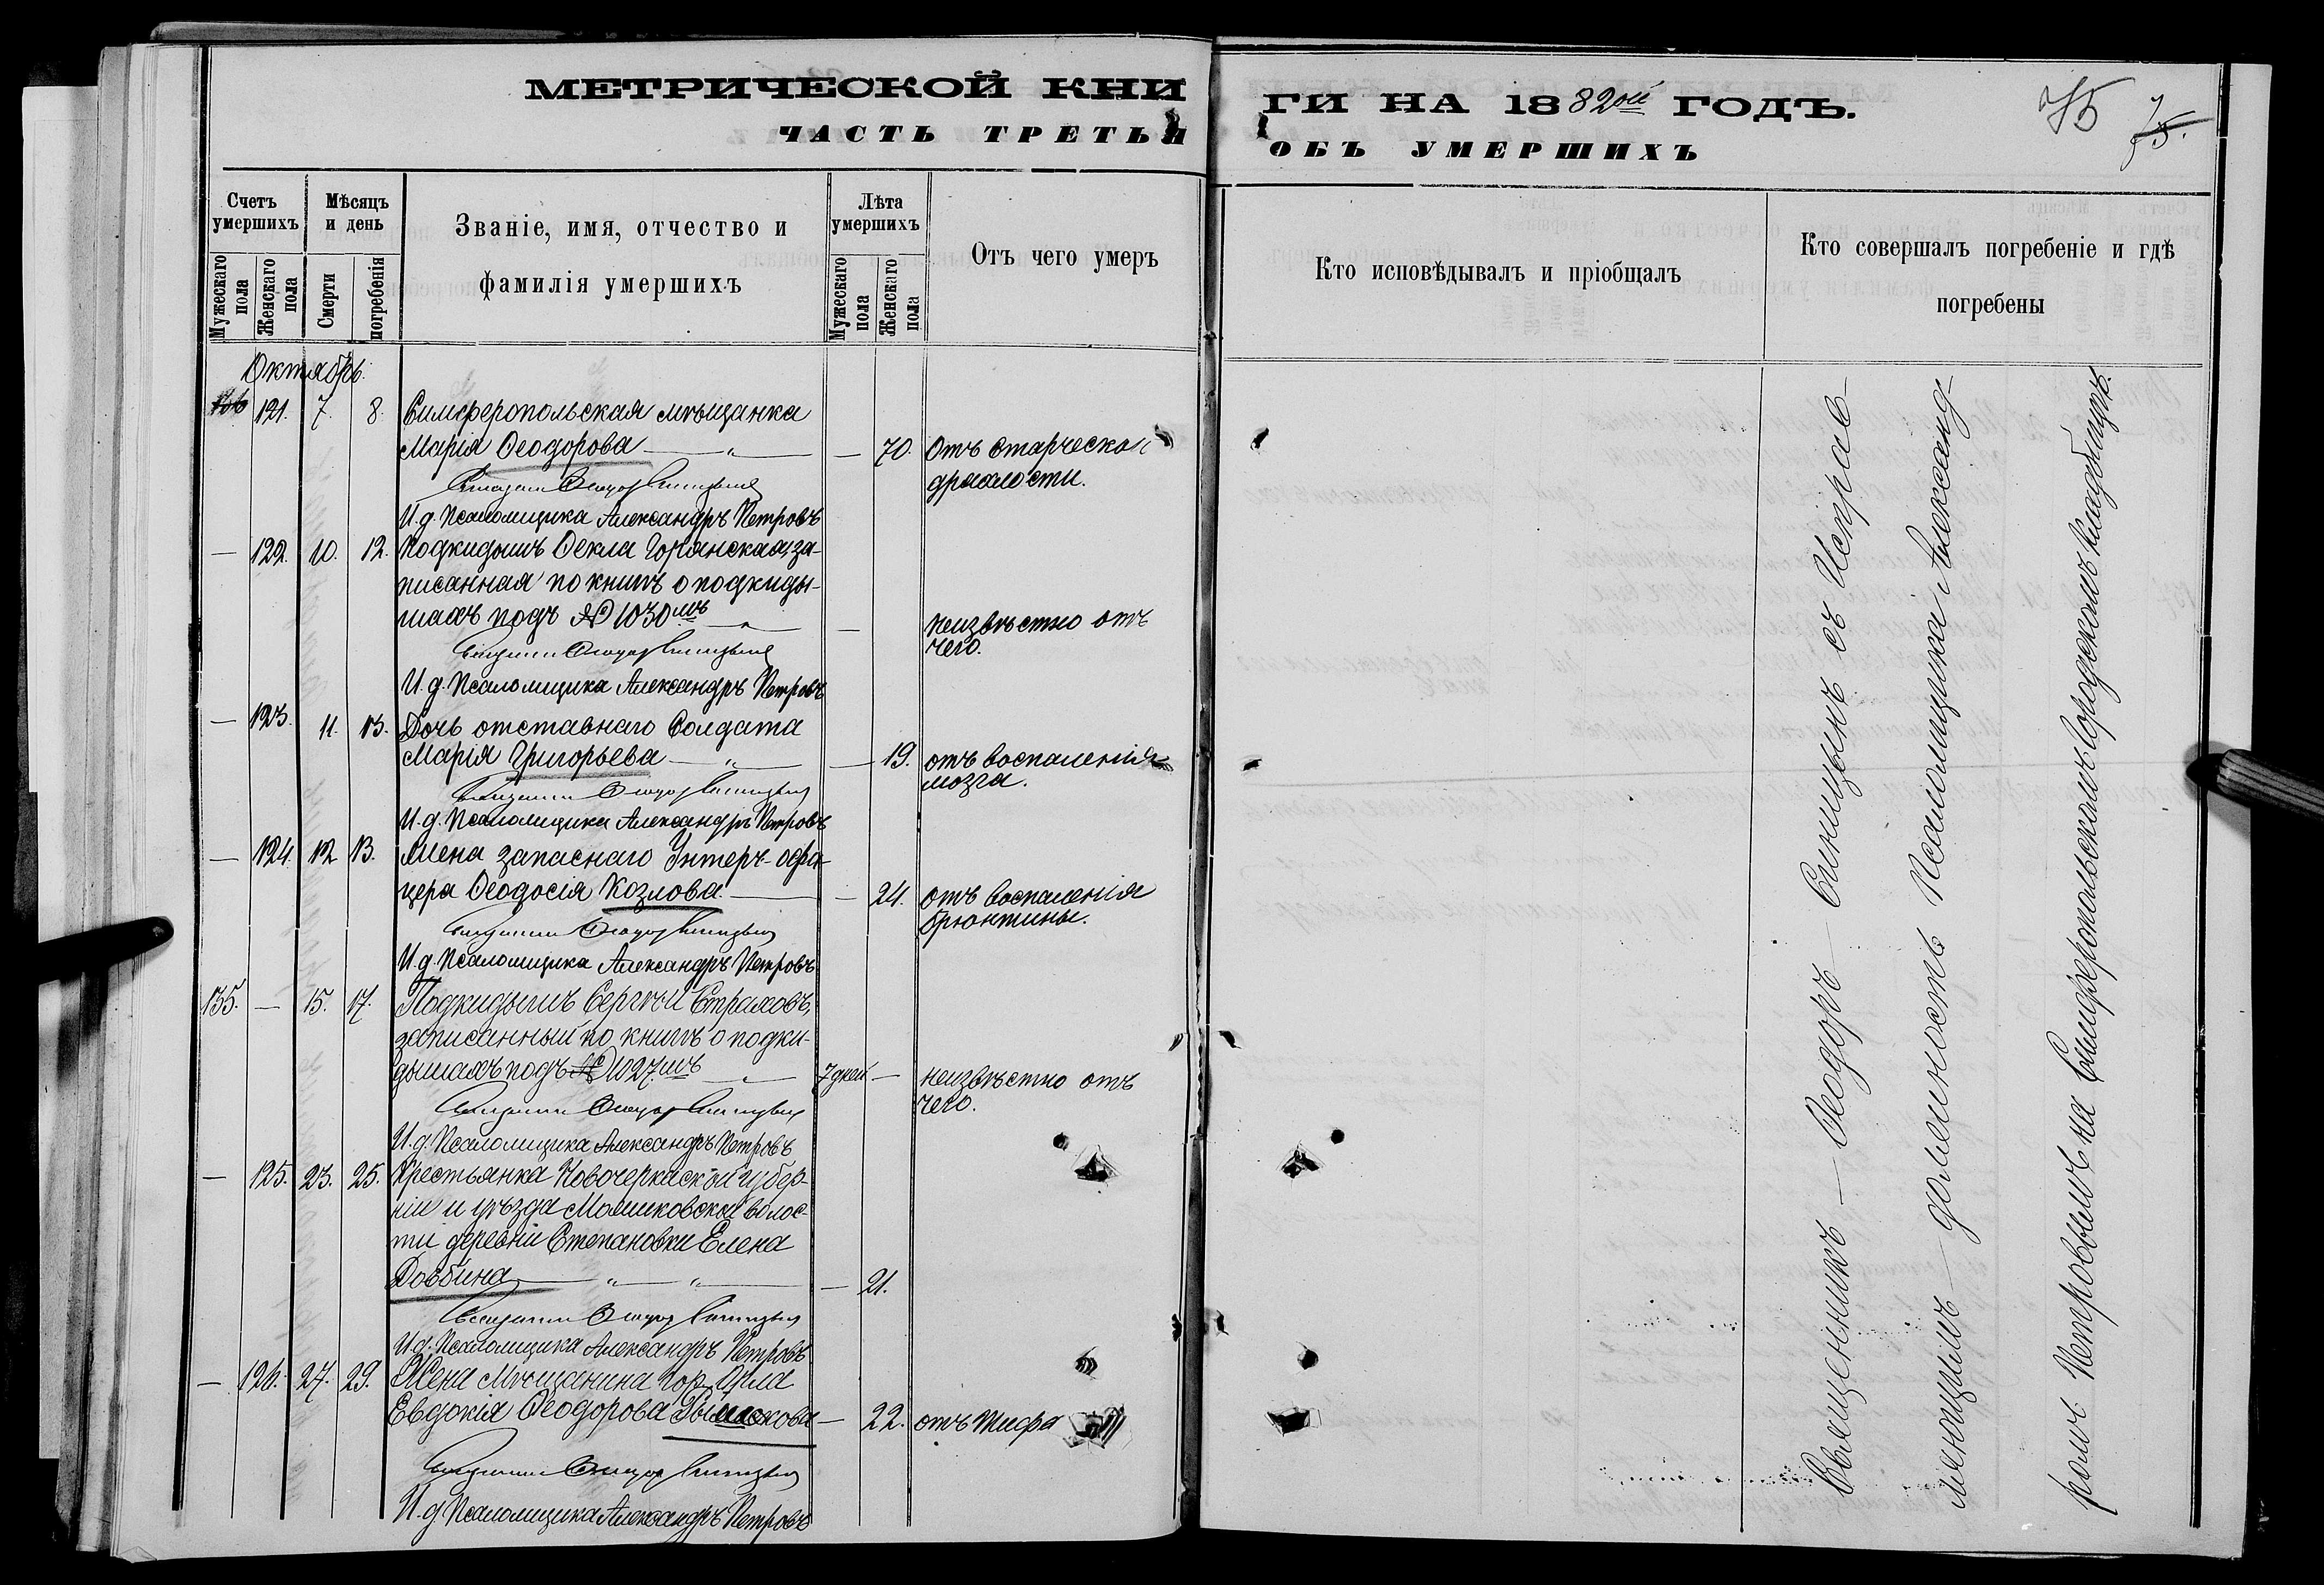 МЕТРИЧЕСКОЙ КНИ
ГИ НА 1882ой ГОДЪ.
75
75.
ЧАСТЬ ТРЕТЬЯ
ОБЪ УМЕРШИХЪ
Счетъ умершихъ
Мѣсяцъ и день
Званіе, имя, отчество и
фамилія умершихъ
Лѣта умершихъ
Отъ чего умеръ
Кто исповѣдывалъ и пріобщалъ
Кто совершалъ погребеніе и гдѣ
погребены
Мужескаго пола
Женскаго пола
Смерти
погребенія
Мужескаго пола
Женскаго пола
Октябрь.
121. 7. 8. Симферопольская мѣщанка
Марія Ѳеодорова — „ — — 70. Отъ старческой
дряхлости.
Священникъ Ѳеодоръ Синицынъ
И. д. Псаломщика Александръ Петровъ
— 122. 10. 12. Подкидышъ Ѳекла за-
писанная по книгѣ о подкиды-
шахъ подъ № 1030мъ — неизвѣстно отъ
чего.
Священникъ Ѳеодоръ Синицынъ
И. д. Псаломщика Александръ Петровъ
— 123. 11. 13. Дочь отставнаго Солдата
Марія Григорьева — „ — — 19. отъ воспаленія
мозга.
Священникъ Ѳеодоръ Синицынъ
И. д. Псаломщика Александръ Петровъ
— 124. 12 13. Жена запаснаго Унтеръ-офи-
цера Ѳеодосія Козлова. — — 24. отъ воспаленія
брюшины.
Священникъ Ѳеодоръ Синицынъ
И. д. Псаломщика Александръ Петровъ
135. — 15. 17. Подкидышъ Сергѣй Страховъ,
записанный по книгѣ о подки-
дышахъ подъ № 1027.мъ — „ — 7 дней — неизвѣстно отъ
чего.
Священникъ Ѳеодоръ Синицынъ
И. д. Псаломщика Александръ Петровъ
— 125. 23. 25. Крестьянка Новочеркаской губер-
ніи и уѣзда волос-
ти деревни Степановки Елена
Довбина — „ — „ — — 21.
Священникъ Ѳеодоръ Синицынъ
И. д. Псаломщика Александръ Петровъ
— 126. 27. 29. Жена Мѣщанина гор. Орла
Евдокія Ѳеодорова — 22. отъ тифа
Священникъ Ѳеодоръ Синицынъ
И. д. Псаломщика Александръ Петровъ
Священникъ — Ѳеодоръ — Синицынъ съ Исправ-
ляющимъ — должность Псаломщика Александ-
ромъ Петровымъ на Симферопольскомъ городскомъ кладбищѣ.